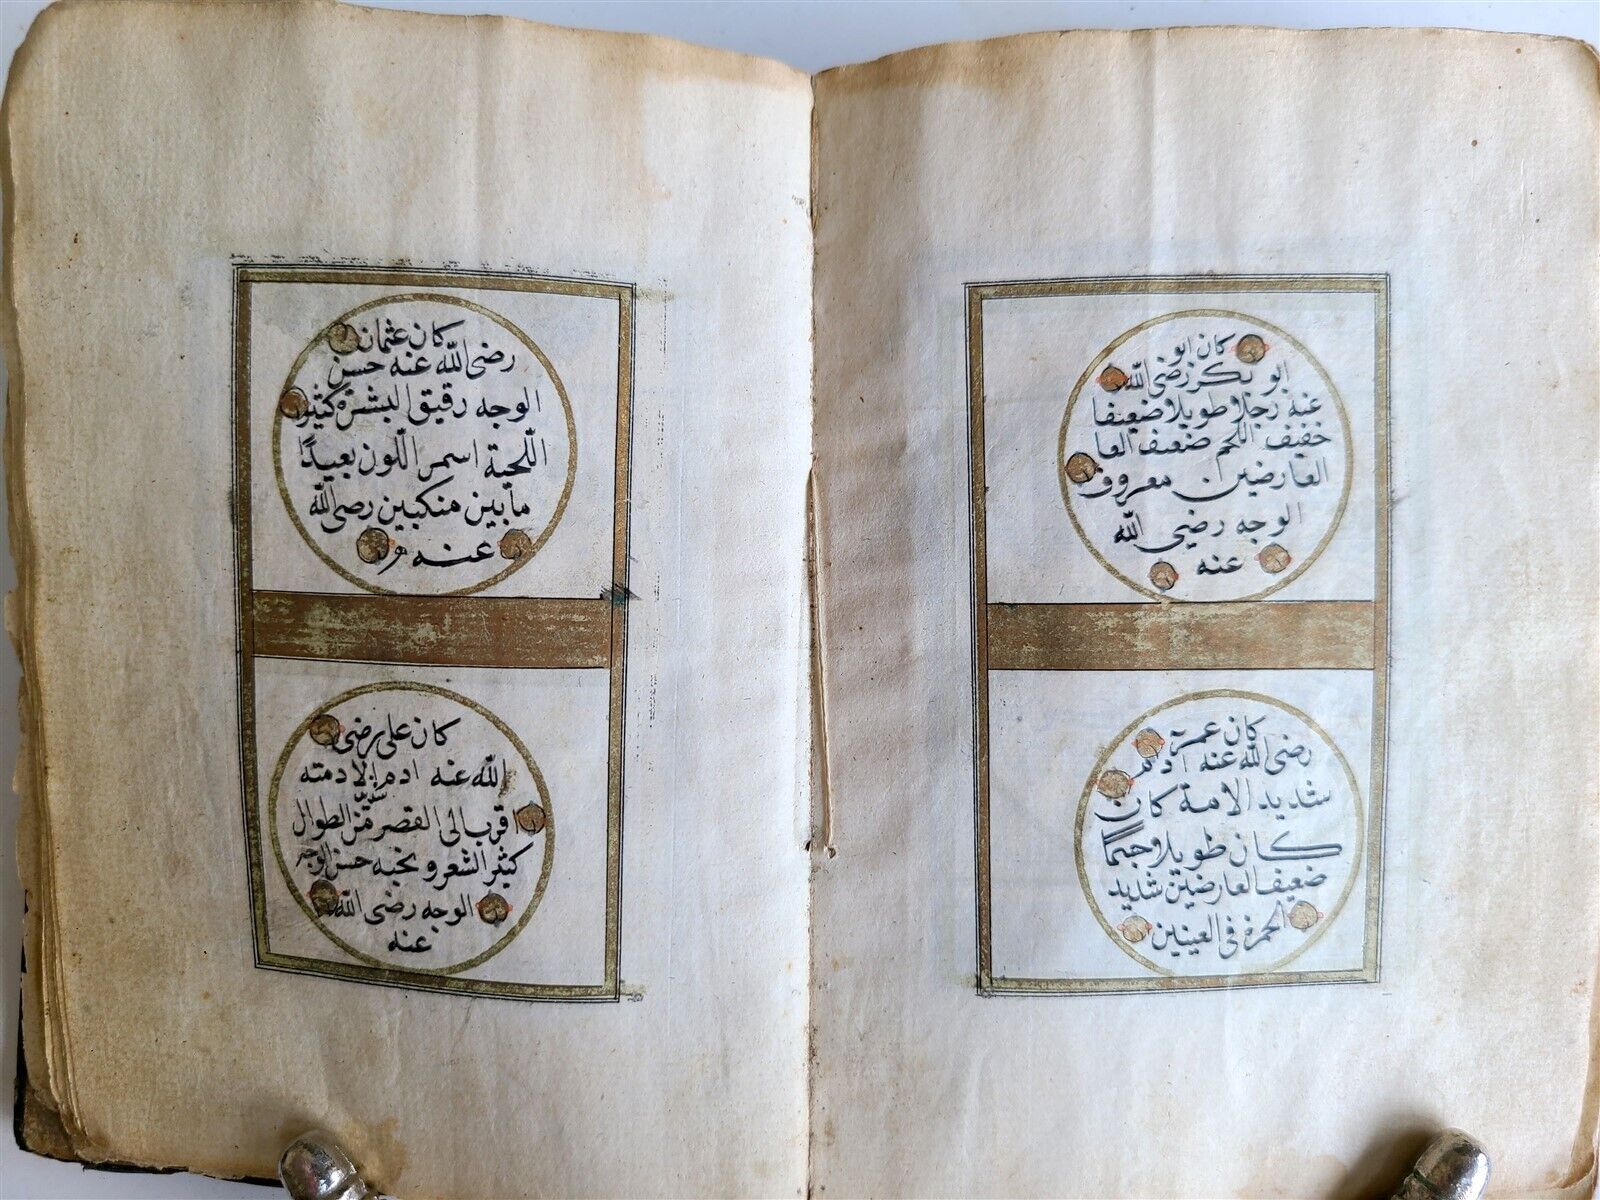 كان ابو
ابو بكر رضى الله
عنه رجلا طويلا ضعيفا
خفيف اللحم ضعيف العا
العارضين معروف
الوجه رضي الله
عنه
كان عمر
رضى الله عنه آدم
شديد الامة كان
كان طويلا وجيها
ضعيف العارضين شديد
الحمرة فى العينين
كان عثمان
رضى الله عنه حسن
الوجه رقيق البشرة كثير
اللحية اسمر اللون بعيدًا
مابين منكبين رضى الله
عنه
كان على رضى
الله عنه ادم الادمته
شديد
اقرب الى القصر من الطوال
كثير الشعر و لحيه حسن الوجه
الوجه رضى الله
عنه